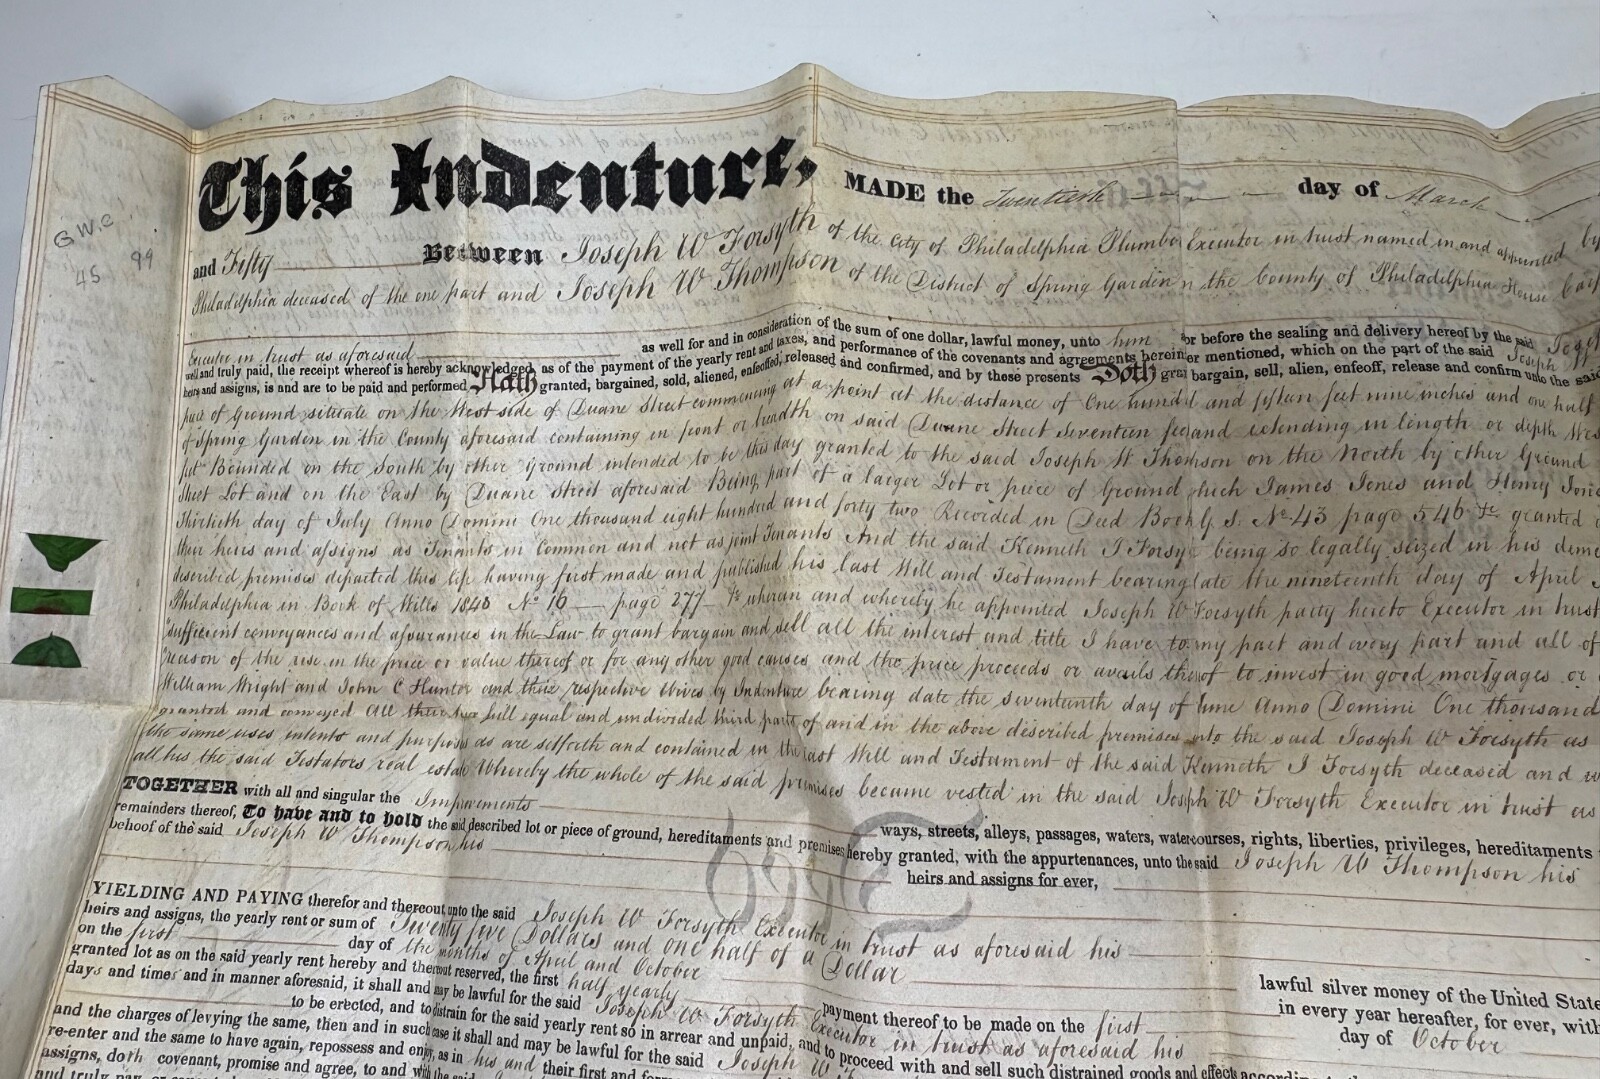 G.W.C
45 99
This Indenture, MADE the Twentieth day of March
and Fifty Between Joseph W Forsyth of the City of Philadelphia Plumber Executor in trust named in and appointed by
Philadelphia deceased of the one part and Joseph W Thompson of the District of Spring Garden in the County of Philadelphia House Car
Executor in trust as aforesaid as well for and in consideration of the sum of one dollar, lawful money, unto him or before the sealing and delivery hereof by the said Jose
well and truly paid, the receipt whereof is hereby acknowledged, as of the payment of the yearly rent and taxes, and performance of the covenants and agreements herein mentioned, which on the part of the said Joseph W
heirs and assigns, is and are to be paid and performed Hath granted, bargained, sold, aliened, enfeoffed, released and confirmed, and by these presents Doth bargain, sell, alien, enfeoff, release and confirm unto the said
piece of Ground situate on the West side of Duane Street commencing at a point at the distance of One hundred and fifteen feet nine inches and one half
of Spring Garden in the County aforesaid containing in front or breadth on said Duane Street Seventeen feet and extending in length or depth Wes
feet Bounded on the South by other Ground intended to be this day granted to the said Joseph W Thomson on the North by other Ground
Street Lot and on the East by Duane Street aforesaid Being part of a larger Lot or piece of Ground which James Jones and Henry Jone
Thirtieth day of July Anno Domini One thousand eight hundred and forty two Recorded in Deed Book G. S. No 43 page 546 &c granted
their heirs and assigns as Tenants in Common and not as joint Tenants And the said Kenneth J Forsyth being so legally seized in his deme
described premises departed this life having first made and published his last Will and Testament bearing date the nineteenth day of April
Philadelphia in Book of Wills 1848 No 16 page 277 &c wherein and whereby he appointed Joseph W Forsyth party hereto Executor in trust
sufficient conveyances and assurances in the Law to grant bargain and sell all the interest and title I have to my part and every part and all of
reason of the rise in the price or value thereof or for any other good causes and the price proceeds or avails thereof to invest in good mortgages or
William Wright and John C Hunter and their respective Wives by Indenture bearing date the seventeenth day of June Anno Domini One thousand
granted and conveyed All their two full equal and undivided third parts of and in the above described premises unto the said Joseph W Forsyth as
the same uses intents and purposes as are setforth and contained in the last Will and Testament of the said Kenneth J Forsyth deceased and
all his the said Testators real estate Whereby the whole of the said premises became vested in the said Joseph W Forsyth Executor in trust as
TOGETHER with all and singular the Improvements ways, streets, alleys, passages, waters, water-courses, rights, liberties, privileges, hereditaments
remainders thereof, To have and to hold the said described lot or piece of ground, hereditaments and premises hereby granted, with the appurtenances, unto the said Joseph W Thompson his
behoof of the said Joseph W Thompson his heirs and assigns for ever,
YIELDING AND PAYING therefor and thereout unto the said Joseph W Forsyth Executor in trust as aforesaid his
heirs and assigns, the yearly rent or sum of Twenty five Dollars and one half of a Dollar lawful silver money of the United State
on the first day of the months of April and October in every year hereafter, for ever, with
granted lot as on the said yearly rent hereby and thereout reserved, the first half yearly payment thereof to be made on the first day of October
days and times and in manner aforesaid, it shall and may be lawful for the said Joseph W Forsyth Executor in trust as aforesaid his
to be erected, and to distrain for the said yearly rent so in arrear and unpaid, and to proceed with and sell such distrained goods and effects
and the charges of levying the same, then and in such case it shall and may be lawful for the said Joseph W
re-enter and the same to have again, repossess and enjoy, as in his and their first and
assigns, doth covenant, promise and agree, to and with the said
and truly pay